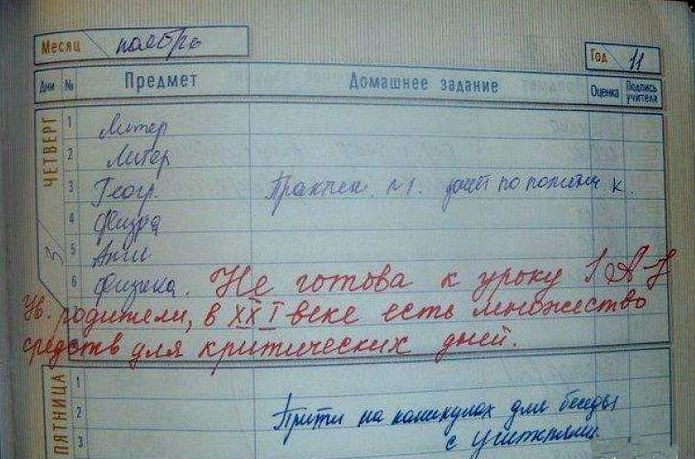 Месяц ноябрь Год 11
Дни № Предмет Домашнее задание Оценка Подпись учителя
ЧЕТВЕРГ 3
1 Литер
2 Литер
3 Геогр. Практич. №1. зачёт по
4 Физра
5 Англ
6 Физика. Не готова к уроку !
Ув. родители, в XXI веке есть множество
средств для критических дней.
ПЯТНИЦА
1
2 Прийти на каникулах для беседы
3 с учителями